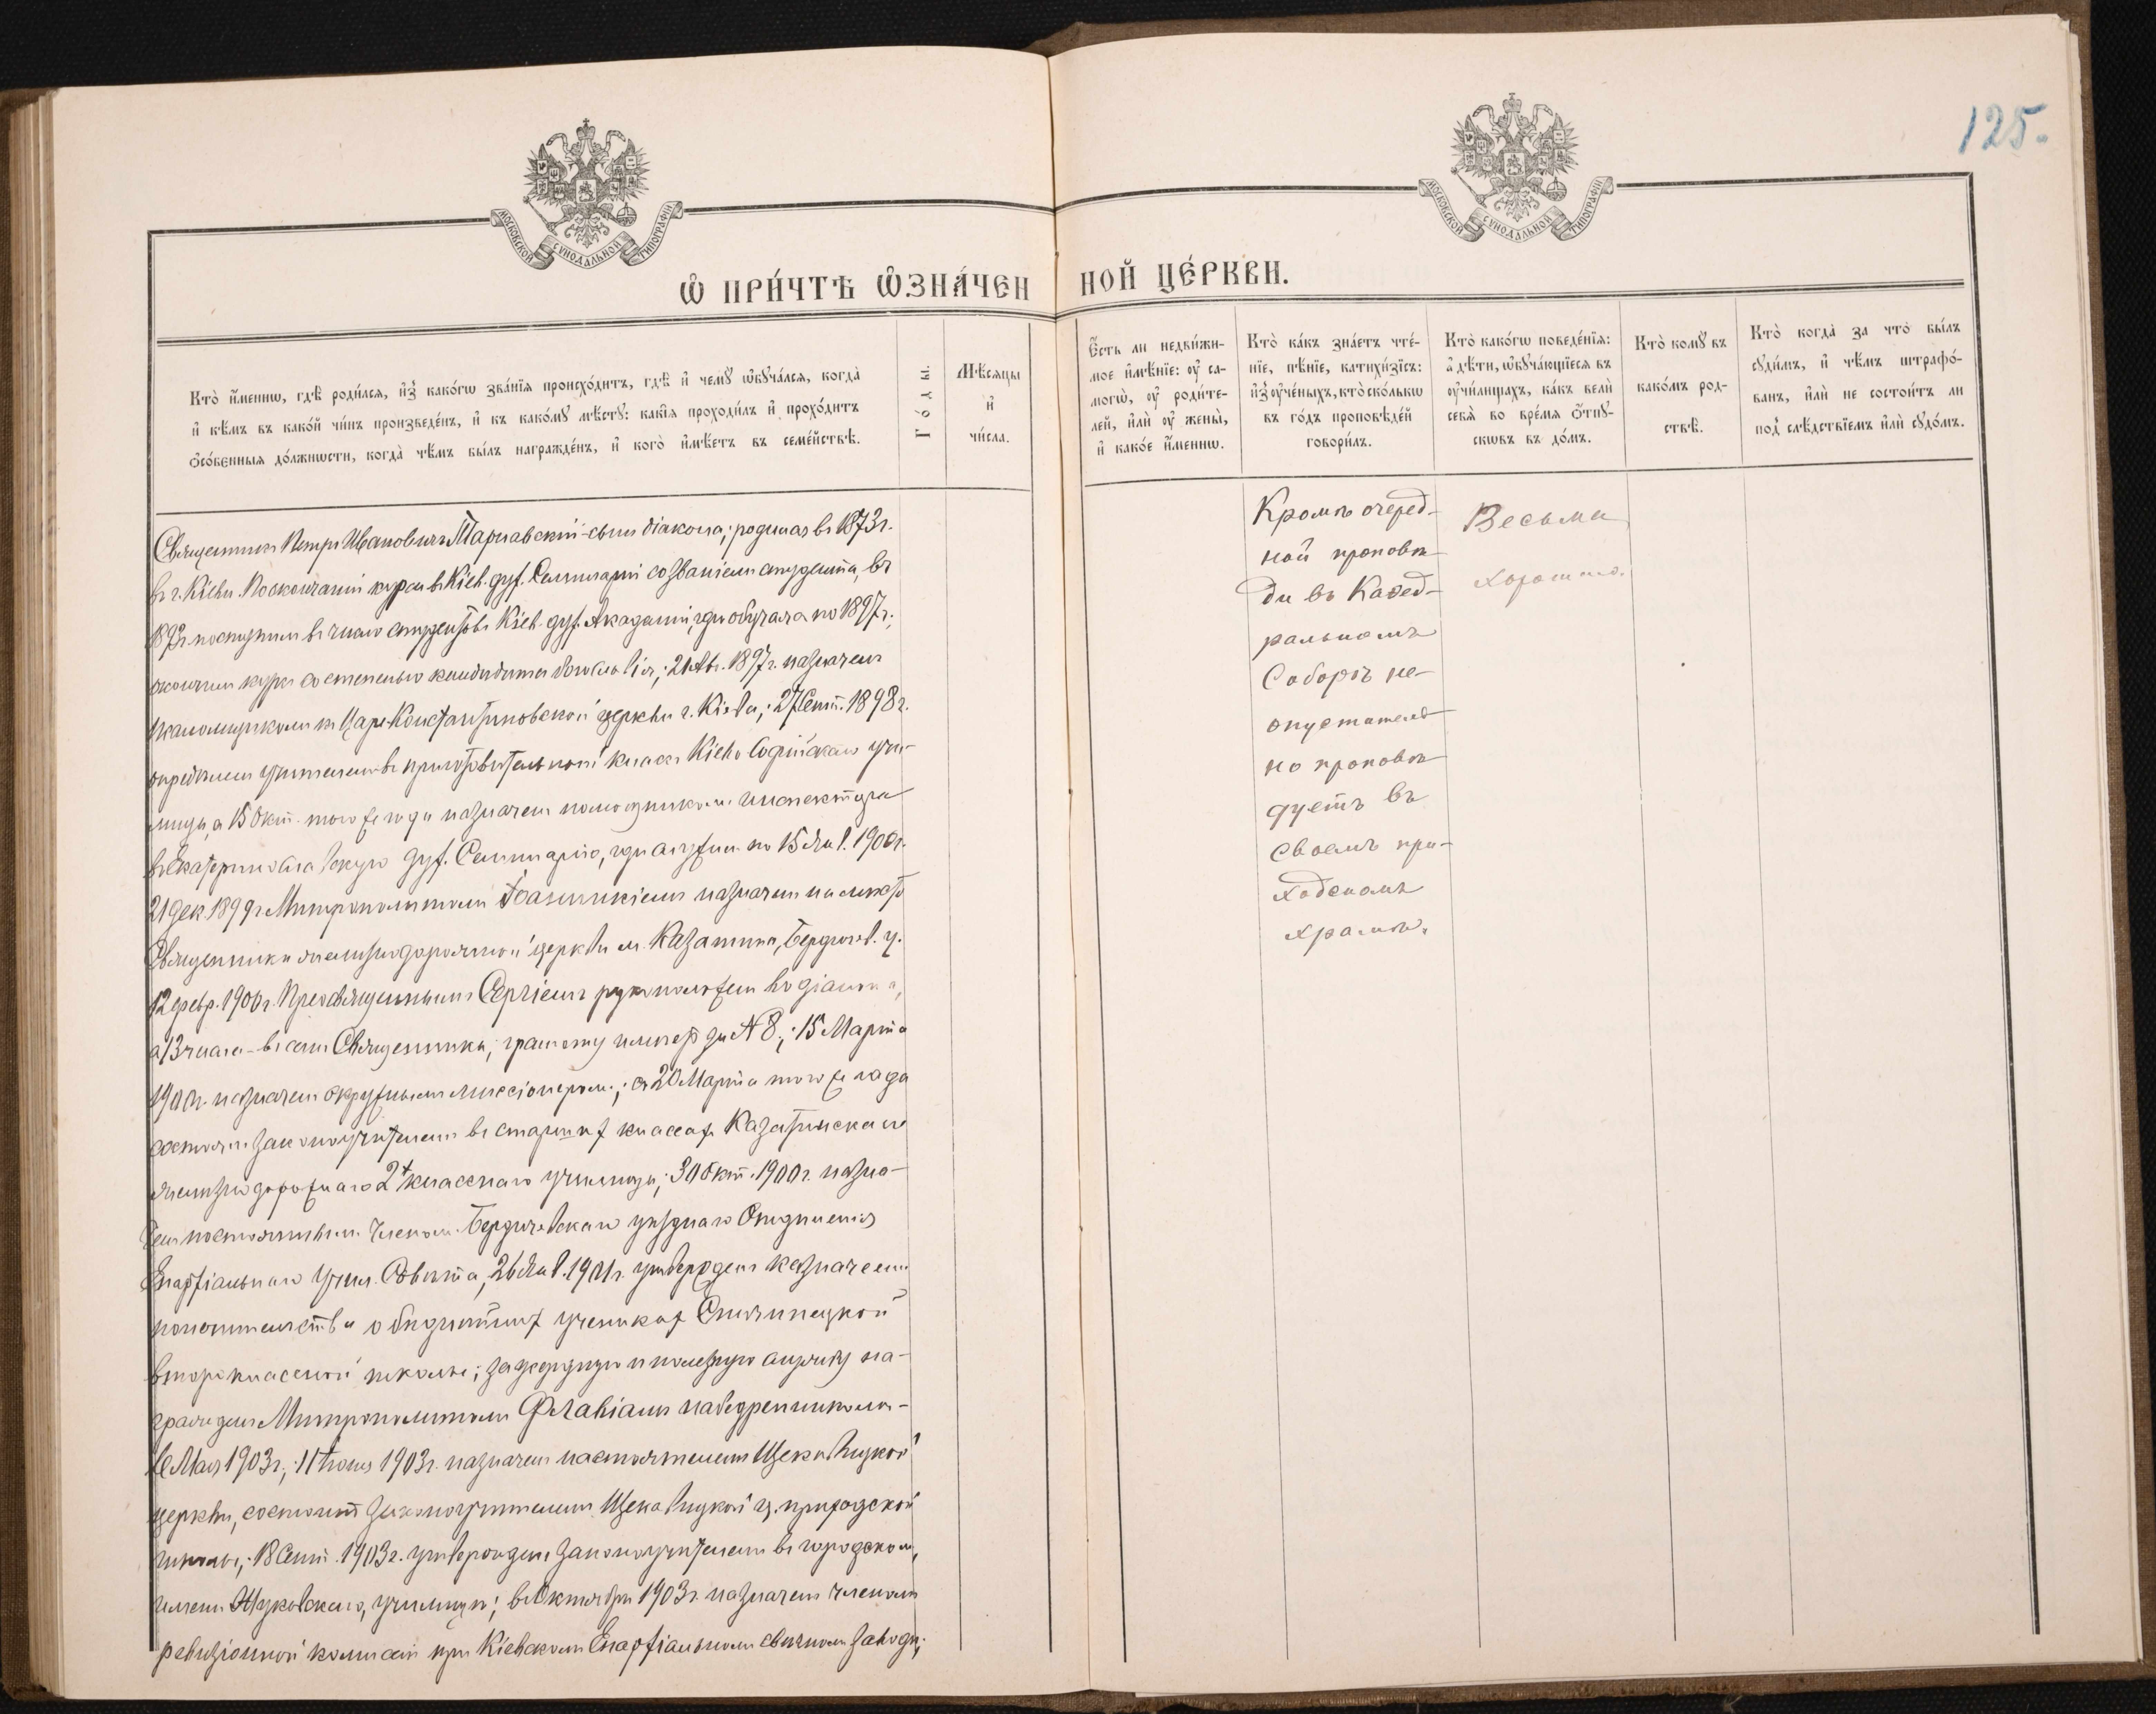 125.
МОСКОВСКОЙ СѴНОДАЛЬНОЙ ТИПОГРАФІИ
МОСКОВСКОЙ СѴНОДАЛЬНОЙ ТИПОГРАФІИ
Ѡ ПРИ́ЧТѢ ѠЗНА́ЧЕН НОЙ ЦЕ́РКВИ.
Кто̀ и҆́менно, гдѣ̀ роди́лся, и҆з̾ како́гѡ зва́нїѧ происхо́дитъ, гдѣ̀ и҆ чемꙋ̀ ѡ҆бꙋча́лсѧ, когда̀
и҆ кѣ́мъ въ како́й чи́нъ произведе́нъ, и҆ къ како́мꙋ мѣ́стꙋ: какі̑ѧ проходи́лъ и҆ прохо́дитъ
ѻ҆со́бенныѧ до́лжнѡсти, когда̀ чѣ́мъ бы́лъ награжде́нъ, и҆ кого̀ и҆мѣ́етъ въ семе́йствѣ.
Го́ды.
Мѣ́сяцы
и҆
чи́сла.
Є҆́сть ли недви́жи-
мое и҆мѣ́нїе: ᲂу҆ са-
могѡ̀, ᲂу҆ роди́те-
лей, и҆лѝ ᲂу҆ жены̀,
и҆ како́е и҆́меннѡ.
Кто̀ ка́къ зна́етъ чте́-
нїе, пѣ́нїе, катихи́зїсъ:
и҆з̾ ᲂу҆че́ныхъ, кто̀ ско́лькѡ
въ го́дъ проповѣ́дей
говори́лъ.
Кто̀ како́гѡ поведе́нїѧ:
а҆ дѣ́ти, ѡ҆бꙋча́ющїесѧ въ
ᲂу҆чи́лищахъ, ка́къ велѝ
себѧ̀ во вре́мѧ ѿпꙋ-
скѡвъ въ до́мъ.
Кто̀ комꙋ̀ въ
како́мъ род-
ствѣ̀.
Кто̀ когда̀ за что̀ бы́лъ
сꙋди́мъ, и҆ чѣ́мъ штрафо́-
ванъ, и҆лѝ не состои́тъ ли
под̾ слѣ́дствїемъ и҆лѝ сꙋдо́мъ.
Священникъ Петръ Ивановичъ Тарнавскій - сынъ діакона; родился въ 1873 г.
въ г. Кіевѣ. По окончаніи курса въ Кіев. дух. Семинаріи со званіемъ студента, въ
1893 г. поступилъ въ число студентовъ Кіев. дух. Академіи, гдѣ обучался по 1897 г.;
окончилъ курсъ со степенью кандидата богословія; 21 Авг. 1897 г. назначенъ
псаломщикомъ къ Царе-Константиновской церкви г. Кіева; 27 Сент. 1898 г.
опредѣленъ учителемъ въ приготовительный классъ Кіево-Софійскаго учи-
лища, а 15 Окт. того же года назначенъ помощникомъ инспектора
въ Екатеринославскую дух. Семинарію, гдѣ служилъ по 15 Янв. 1900 г.
21 Дек 1899 г. Митрополитомъ Іоанникіемъ назначенъ на мѣсто
Священника желѣзнодорожной церкви м. Казатина, Бердичев. у.
12 февр. 1900 г. Преосвященнымъ Сергіемъ рукоположенъ во діакона,
а 13 числа - въ санъ Священника; грамоту имѣетъ за № 8; 15 Марта
1900 г. назначенъ окружнымъ миссіонеромъ; съ 20 Марта того же года
состоялъ законоучителемъ въ старшихъ классахъ Казатинскаго
желѣзнодорожнаго 2х класснаго училища; 30 Окт. 1900 г. назна-
ченъ постояннымъ членомъ Бердичевскаго уѣзднаго Отдѣленія
Епархіальнаго Учил. Совѣта; 26 Янв. 1901 г. утвержденъ казначеемъ
попечительства о бѣднѣйшихъ ученикахъ Спичинецкой
второклассной школы; за усердную и полезную службу на-
гражденъ Митрополитомъ Флавіаномъ набедренникомъ -
Мая 1903 г.; 11 Іюня 1903 г. назначенъ настоятелемъ Щекавицкой
церкви, состоитъ законоучителемъ Щекавицкой ц. приходской
школы; 18 Сент. 1903 г. утвержденъ законоучителемъ въ городскомъ,
имени Жуковскаго, училищѣ; въ Октябрѣ 1903 г. назначенъ членомъ
ревизіонной комиссіи при Кіевскомъ Епархіальномъ свѣчномъ заводѣ;
Кромѣ очеред-
ной проповѣ-
ди въ Каѳед-
ральномъ
Соборѣ не-
опустител-
но проповѣ-
дуетъ въ
своемъ при-
ходскомъ
храмѣ.
Весьма
хорошаго.